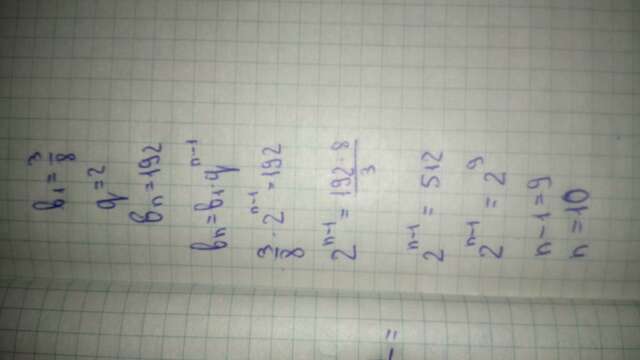 b₁ = 3/8
q = 2
bₙ = 192
bₙ = b₁ · qⁿ⁻¹
3/8 · 2ⁿ⁻¹ = 192
2ⁿ⁻¹ = 192 · 8/3
2ⁿ⁻¹ = 512
2ⁿ⁻¹ = 2⁹
n – 1 = 9
n = 10